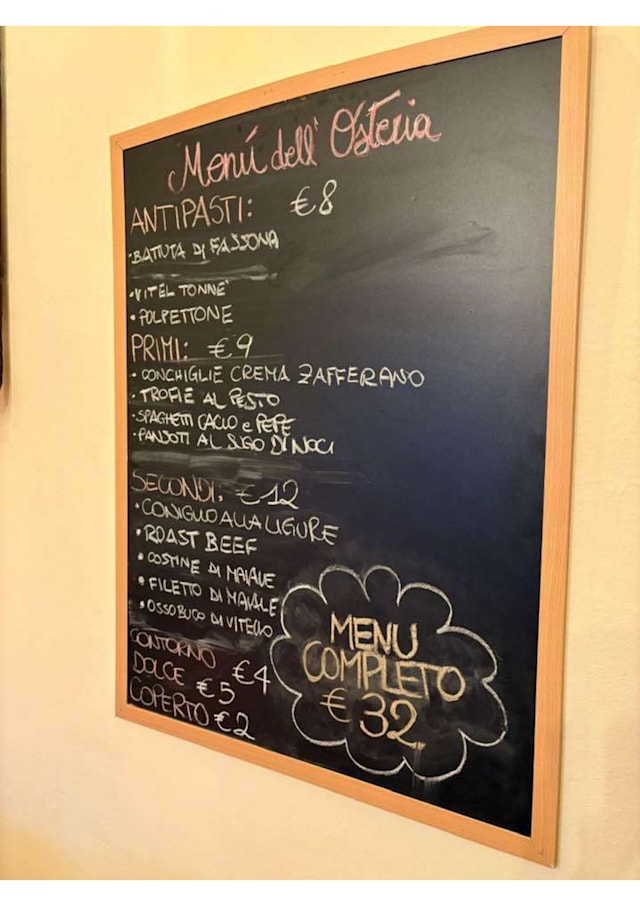 Menú dell' Osteria
ANTIPASTI: €8
• BATTUTA DI FASSONA
• VITEL TONNE'
• POLPETTONE
PRIMI: €9
• CONCHIGLIE CREMA ZAFFERANO
• TROFIE AL PESTO
• SPAGHETTI CACIO e PEPE
• PANSOTI AL SUGO DI NOCI
SECONDI: €12
• CONIGLIO ALLA LIGURE
• ROAST BEEF
• COSTINE DI MAIALE
• FILETTO DI MAIALE
• OSSOBUCO DI VITELLO
CONTORNO €4
DOLCE €5
COPERTO €2
MENU
COMPLETO
€ 32